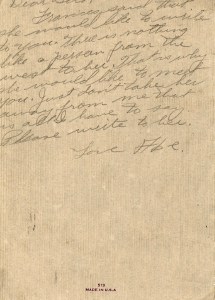 Francy said that
she would like to write
to you. Thee is nothing
like a person from the
west to her. That's why
she would like to meet
you. Just don't take her
away from me that
is all I have to say
Please write to her.
Love Abe.
MADE IN U.S.A